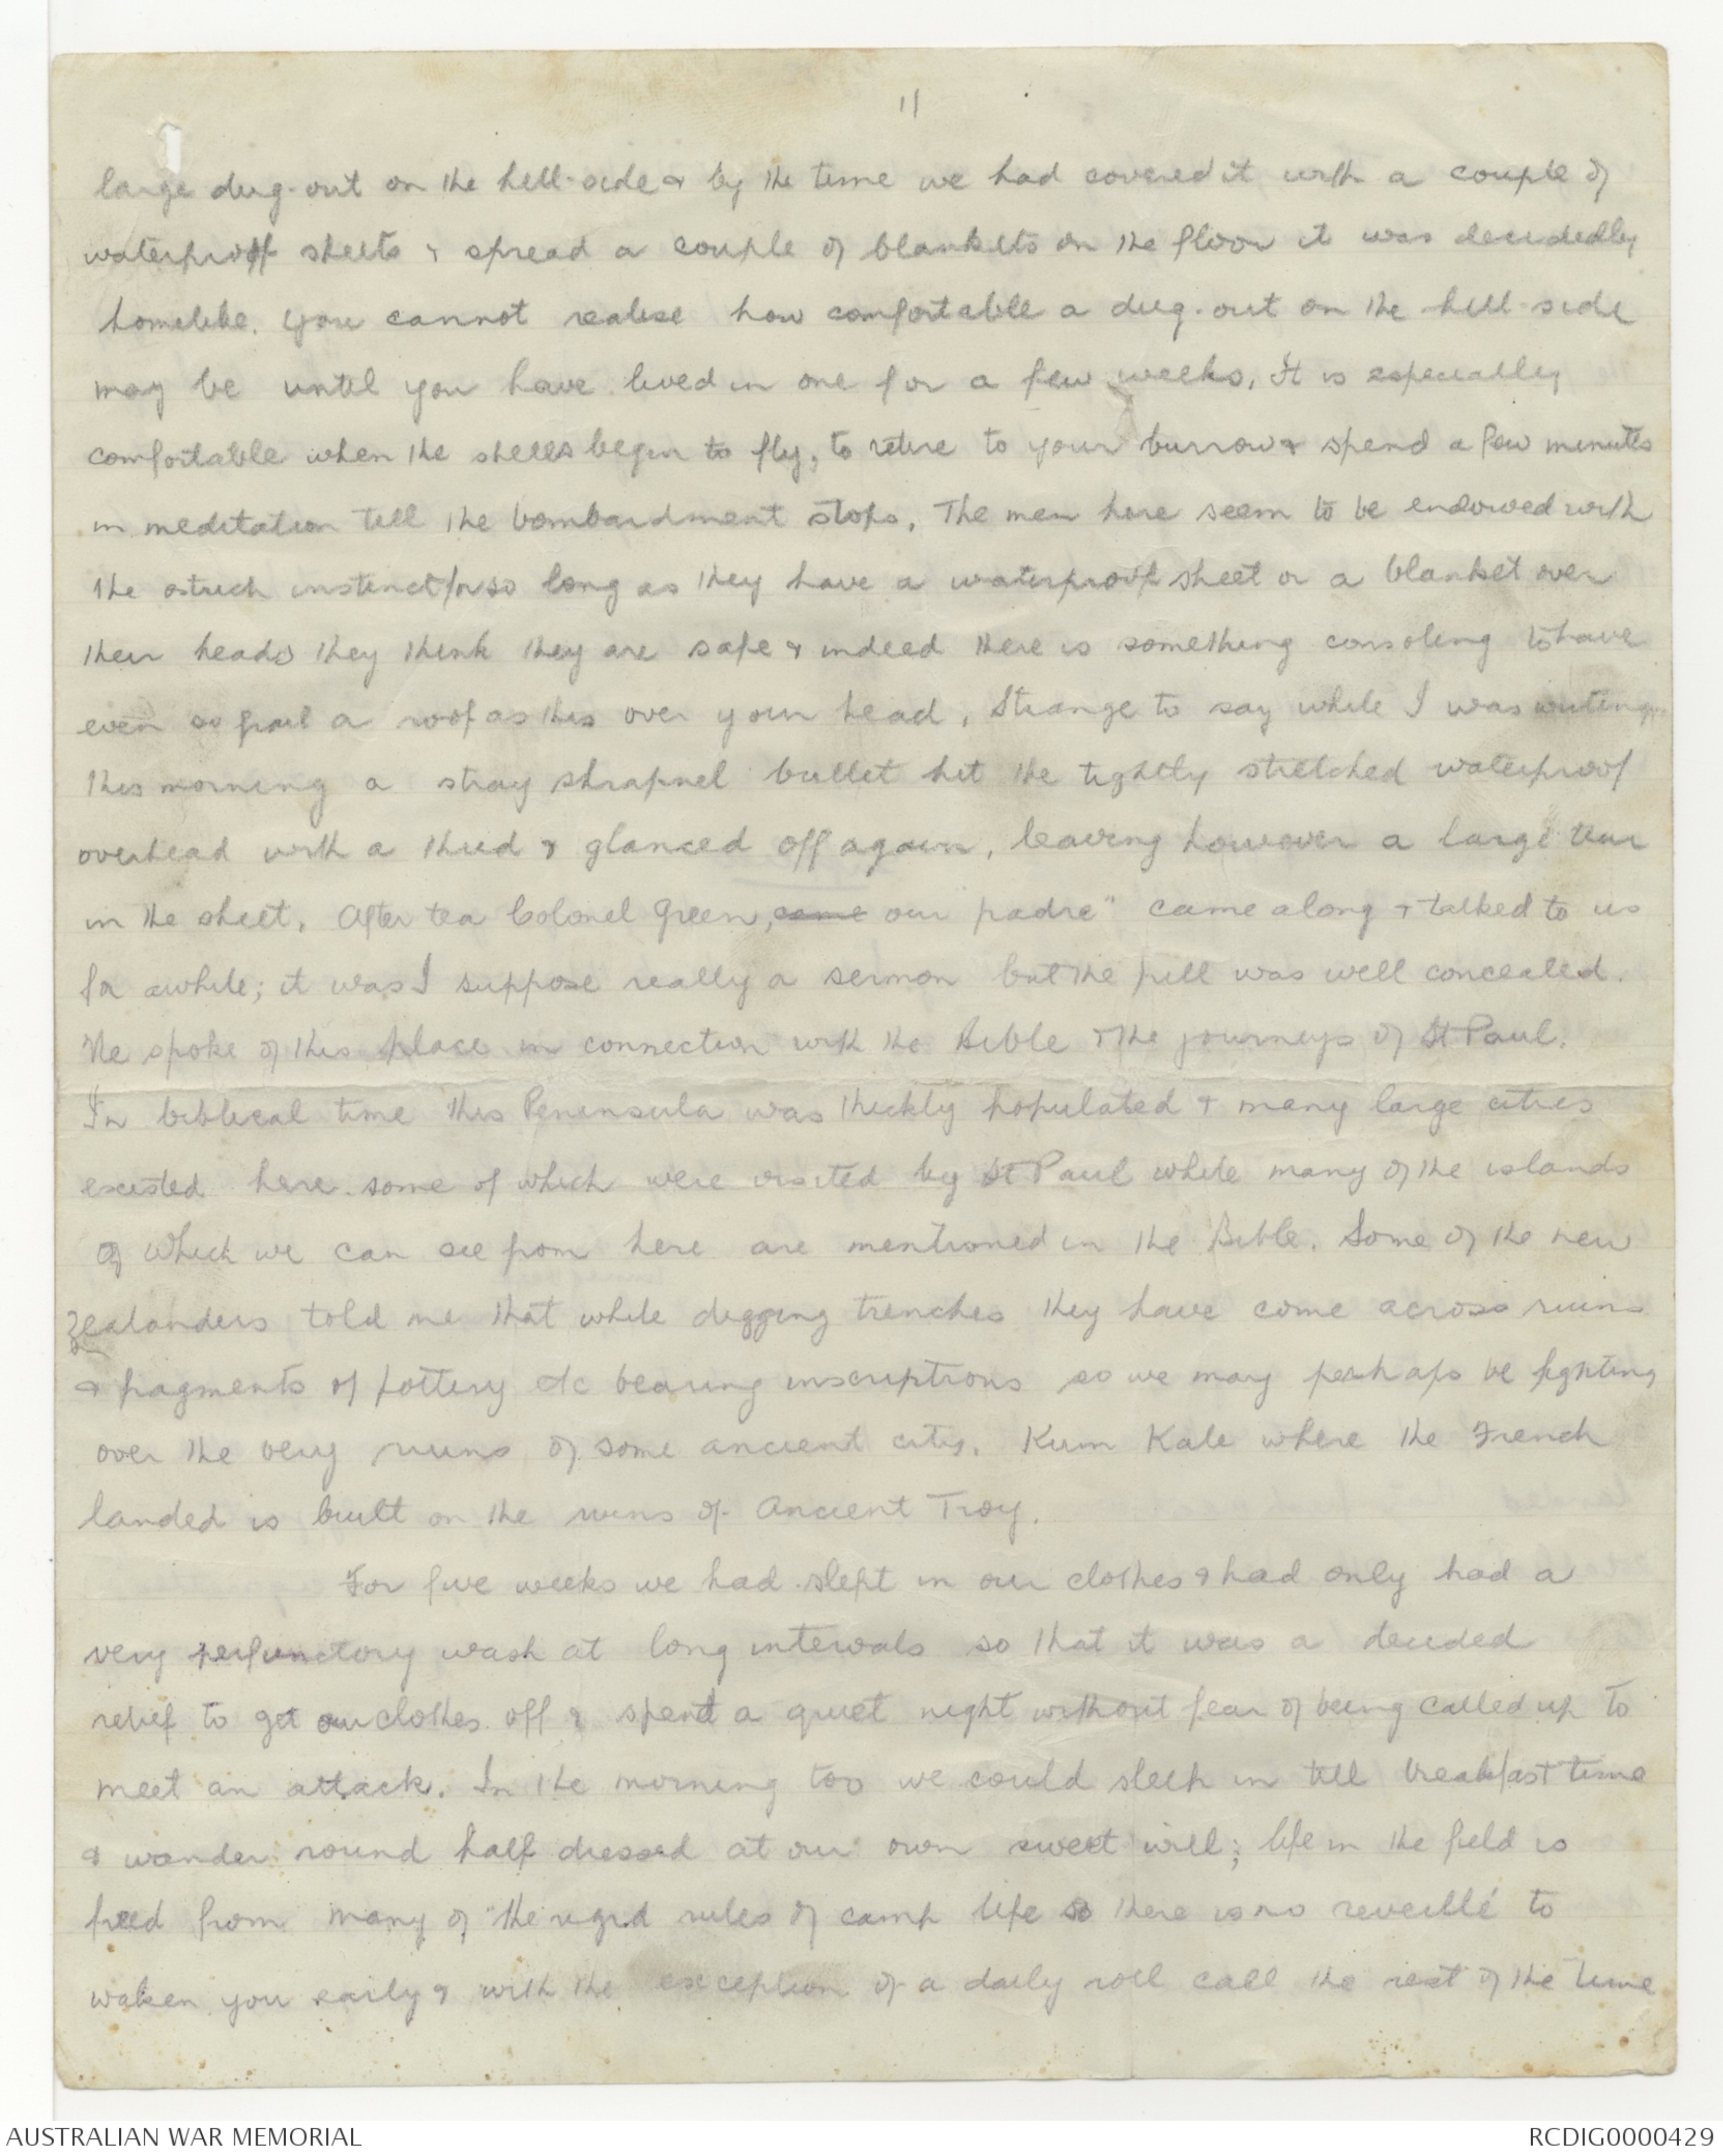 11
large dug-out on the hill-side & by the time we had covered it with a couple of
waterproof sheets & spread a couple of blankets on the floor it was decidedly
homelike. You cannot realise how comfortable a dug-out on the hill-side
may be until you have lived in one for a few weeks. It is especially
comfortable when the shells begin to fly, to retire to your burrow & spend a few minutes
in meditation till the bombardment stops. The men here seem to be endowed with
the ostrich instinct for so long as they have a waterproof sheet or a blanket over
their heads they think they are safe & indeed there is something consoling to have
even so frail a roof as this over your head. Strange to say while I was writing
this morning a stray shrapnel bullet hit the tightly stretched waterproof
overhead with a thud & glanced off again, leaving however a large tear
in the sheet. After tea Colonel Green, came our padre" came along & talked to us
for awhile; it was I suppose really a sermon but the pill was well concealed.
He spoke of this place in connection with the Bible & the journeys of St Paul.
In biblical time this Peninsula was thickly populated & many large cities
existed here some of which were visited by St Paul while many of the islands
of which we can see from here are mentioned in the Bible. Some of the new
Zealanders told me that while digging trenches they have come across ruins
& fragments of pottery etc bearing inscriptions so we may perhaps be fighting
over the very ruins of some ancient city. Kum Kale where the French
landed is built on the ruins of Ancient Troy.
For five weeks we had slept in our clothes & had only had a
very perfunctory wash at long intervals so that it was a decided
relief to get our clothes off & spend a quiet night without fear of being called up to
meet an attack. In the morning too we could sleep in till breakfast time
& wander round half dressed at our own sweet will; life in the field is
freed from many of "the rigid rules of camp life so there is no reveillé to
waken you early & with the exception of a daily roll call the rest of the time
AUSTRALIAN WAR MEMORIAL
RCDIG0000429